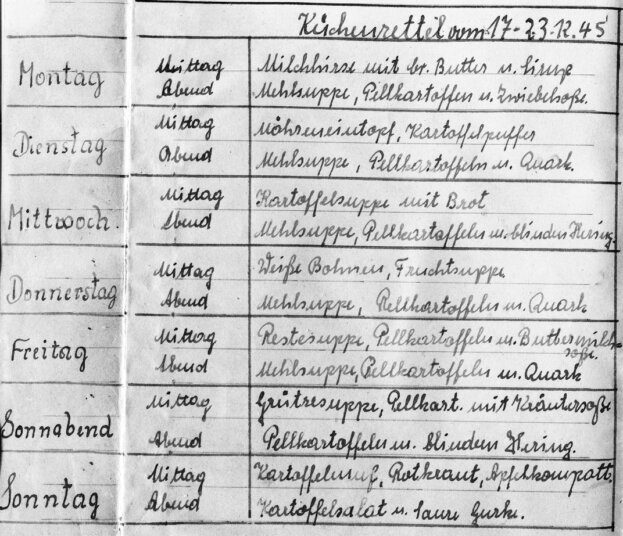 Küchenzettel vom 17-23.12.45
Montag Mittag Milchhirse mit br. Butter u. Sirup
Abend Mehlsuppe, Pellkartoffen u. Zwiebelsoße.
Dienstag Mittag Möhreneintopf, Kartoffelpuffer
Abend Mehlsuppe, Pellkartoffeln u. Quark.
Mittwoch. Mittag Kartoffelsuppe mit Brot
Abend Mehlsuppe, Pellkartoffeln u. blinden Hering.
Donnerstag Mittag Weiße Bohnen, Fruchtsuppe
Abend Mehlsuppe, Pellkartoffeln u. Quark
Freitag Mittag Restesuppe, Pellkartoffeln u. Buttermilch-
soße.
Abend Mehlsuppe, Pellkartoffeln u. Quark
Sonnabend Mittag Grützesuppe, Pellkart. mit Kräutersoße
Abend Pellkartoffeln u. blinden Hering.
Sonntag Mittag Kartoffelmus, Rotkraut, Apfelkompott.
Abend Kartoffelsalat u. saure Gurke.